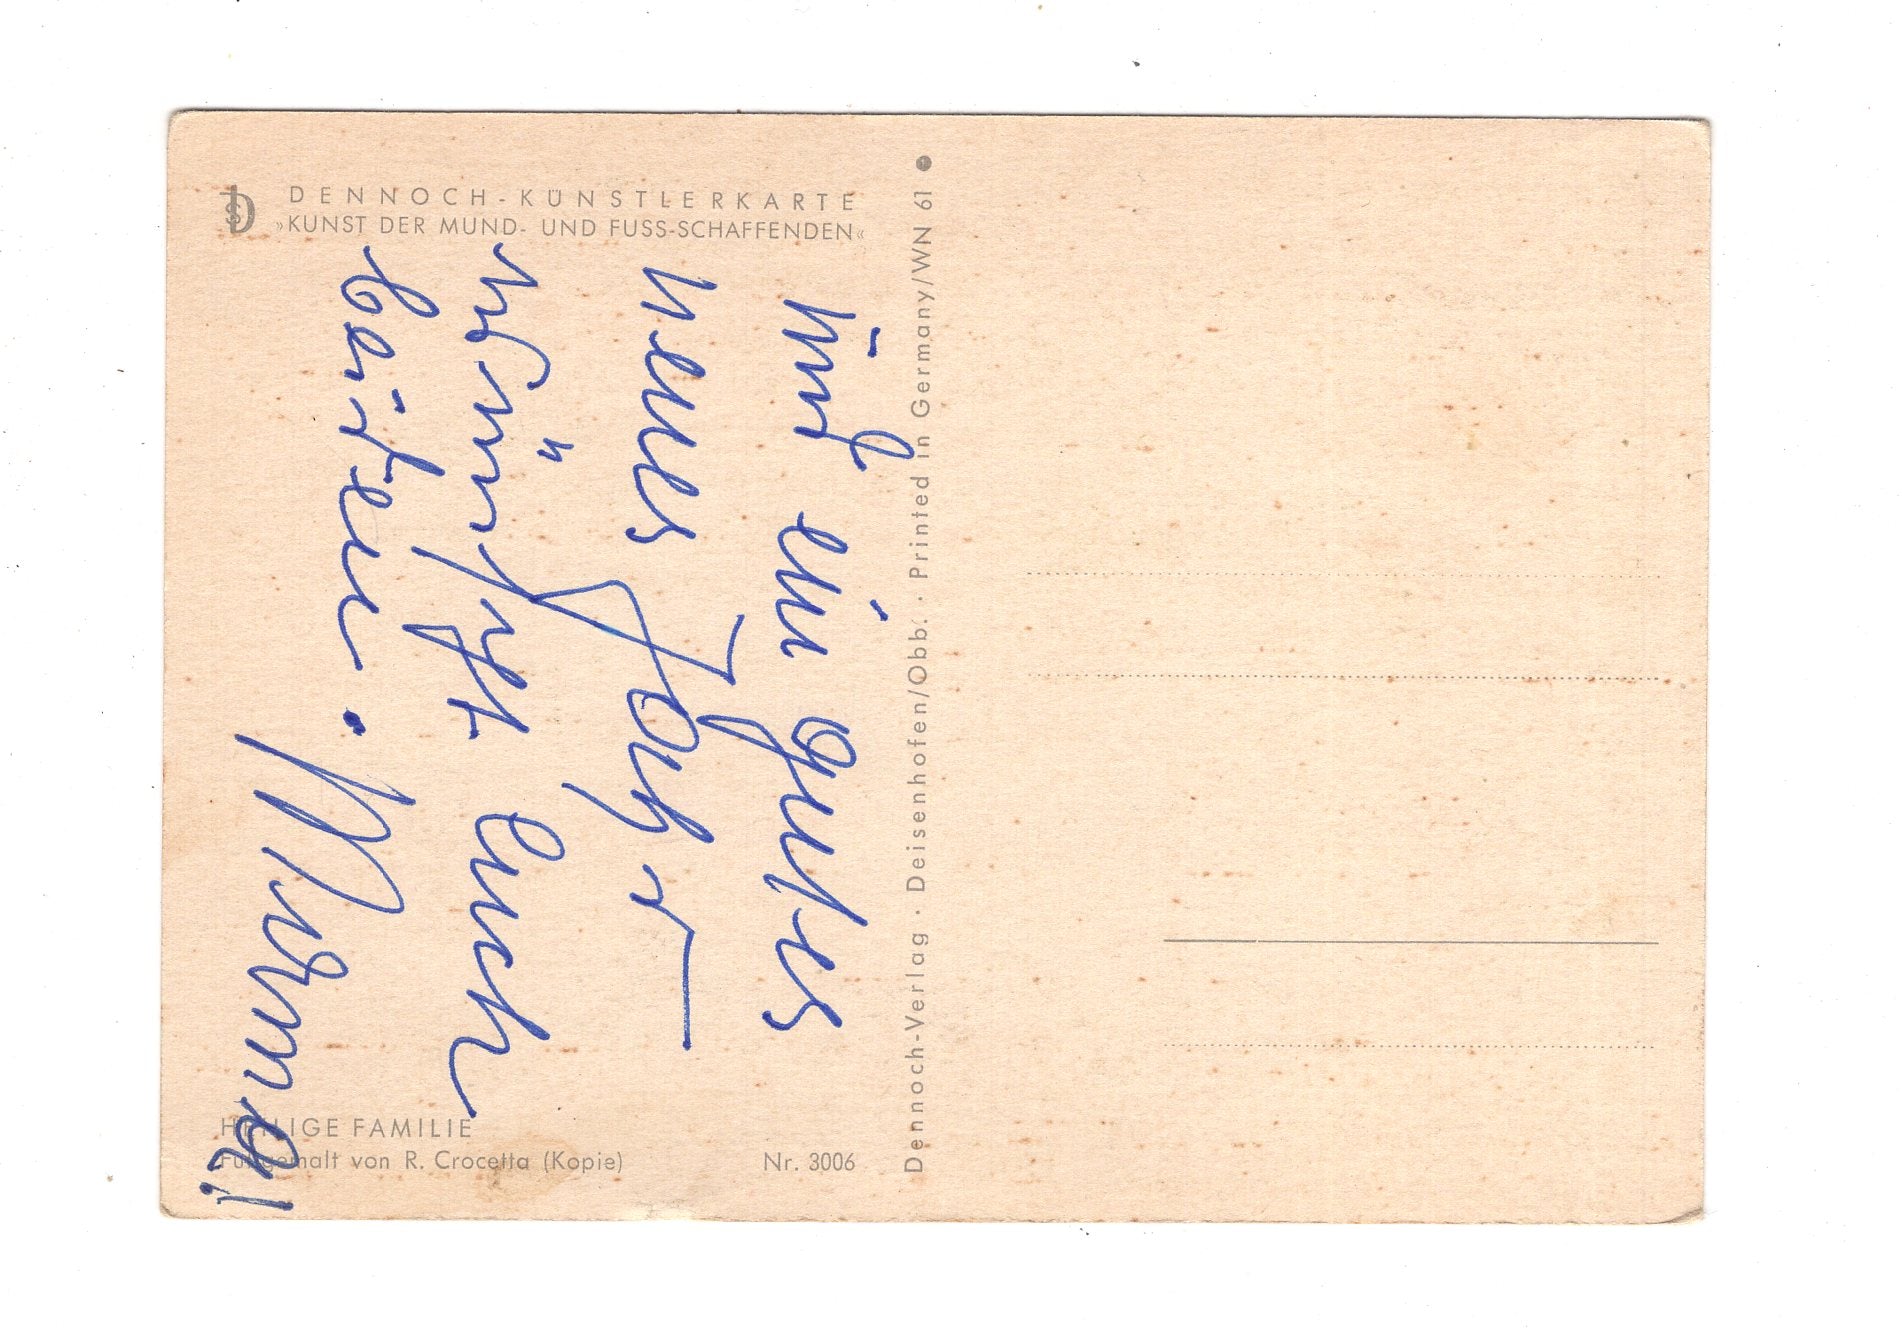 DENNOCH-KÜNSTLERKARTE
»KUNST DER MUND- UND FUSS-SCHAFFENDEN«
und ein gutes
neues Jahr
wünscht Euch
beiden.
Mama!
HEILIGE FAMILIE
Fußgemalt von R. Crocetta (Kopie)
Nr. 3006
Dennoch-Verlag · Deisenhofen/Obb. · Printed in Germany/WN 61 ●